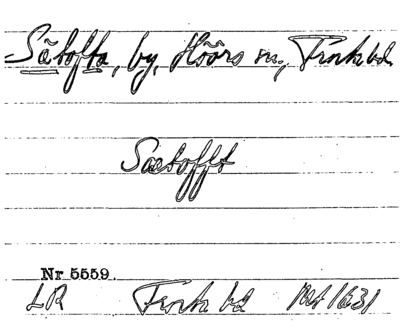 Sätofta, by, Höörs sn., Frosta hd.
Saetofft
Nr 5559.
LR Frosta hd 1631